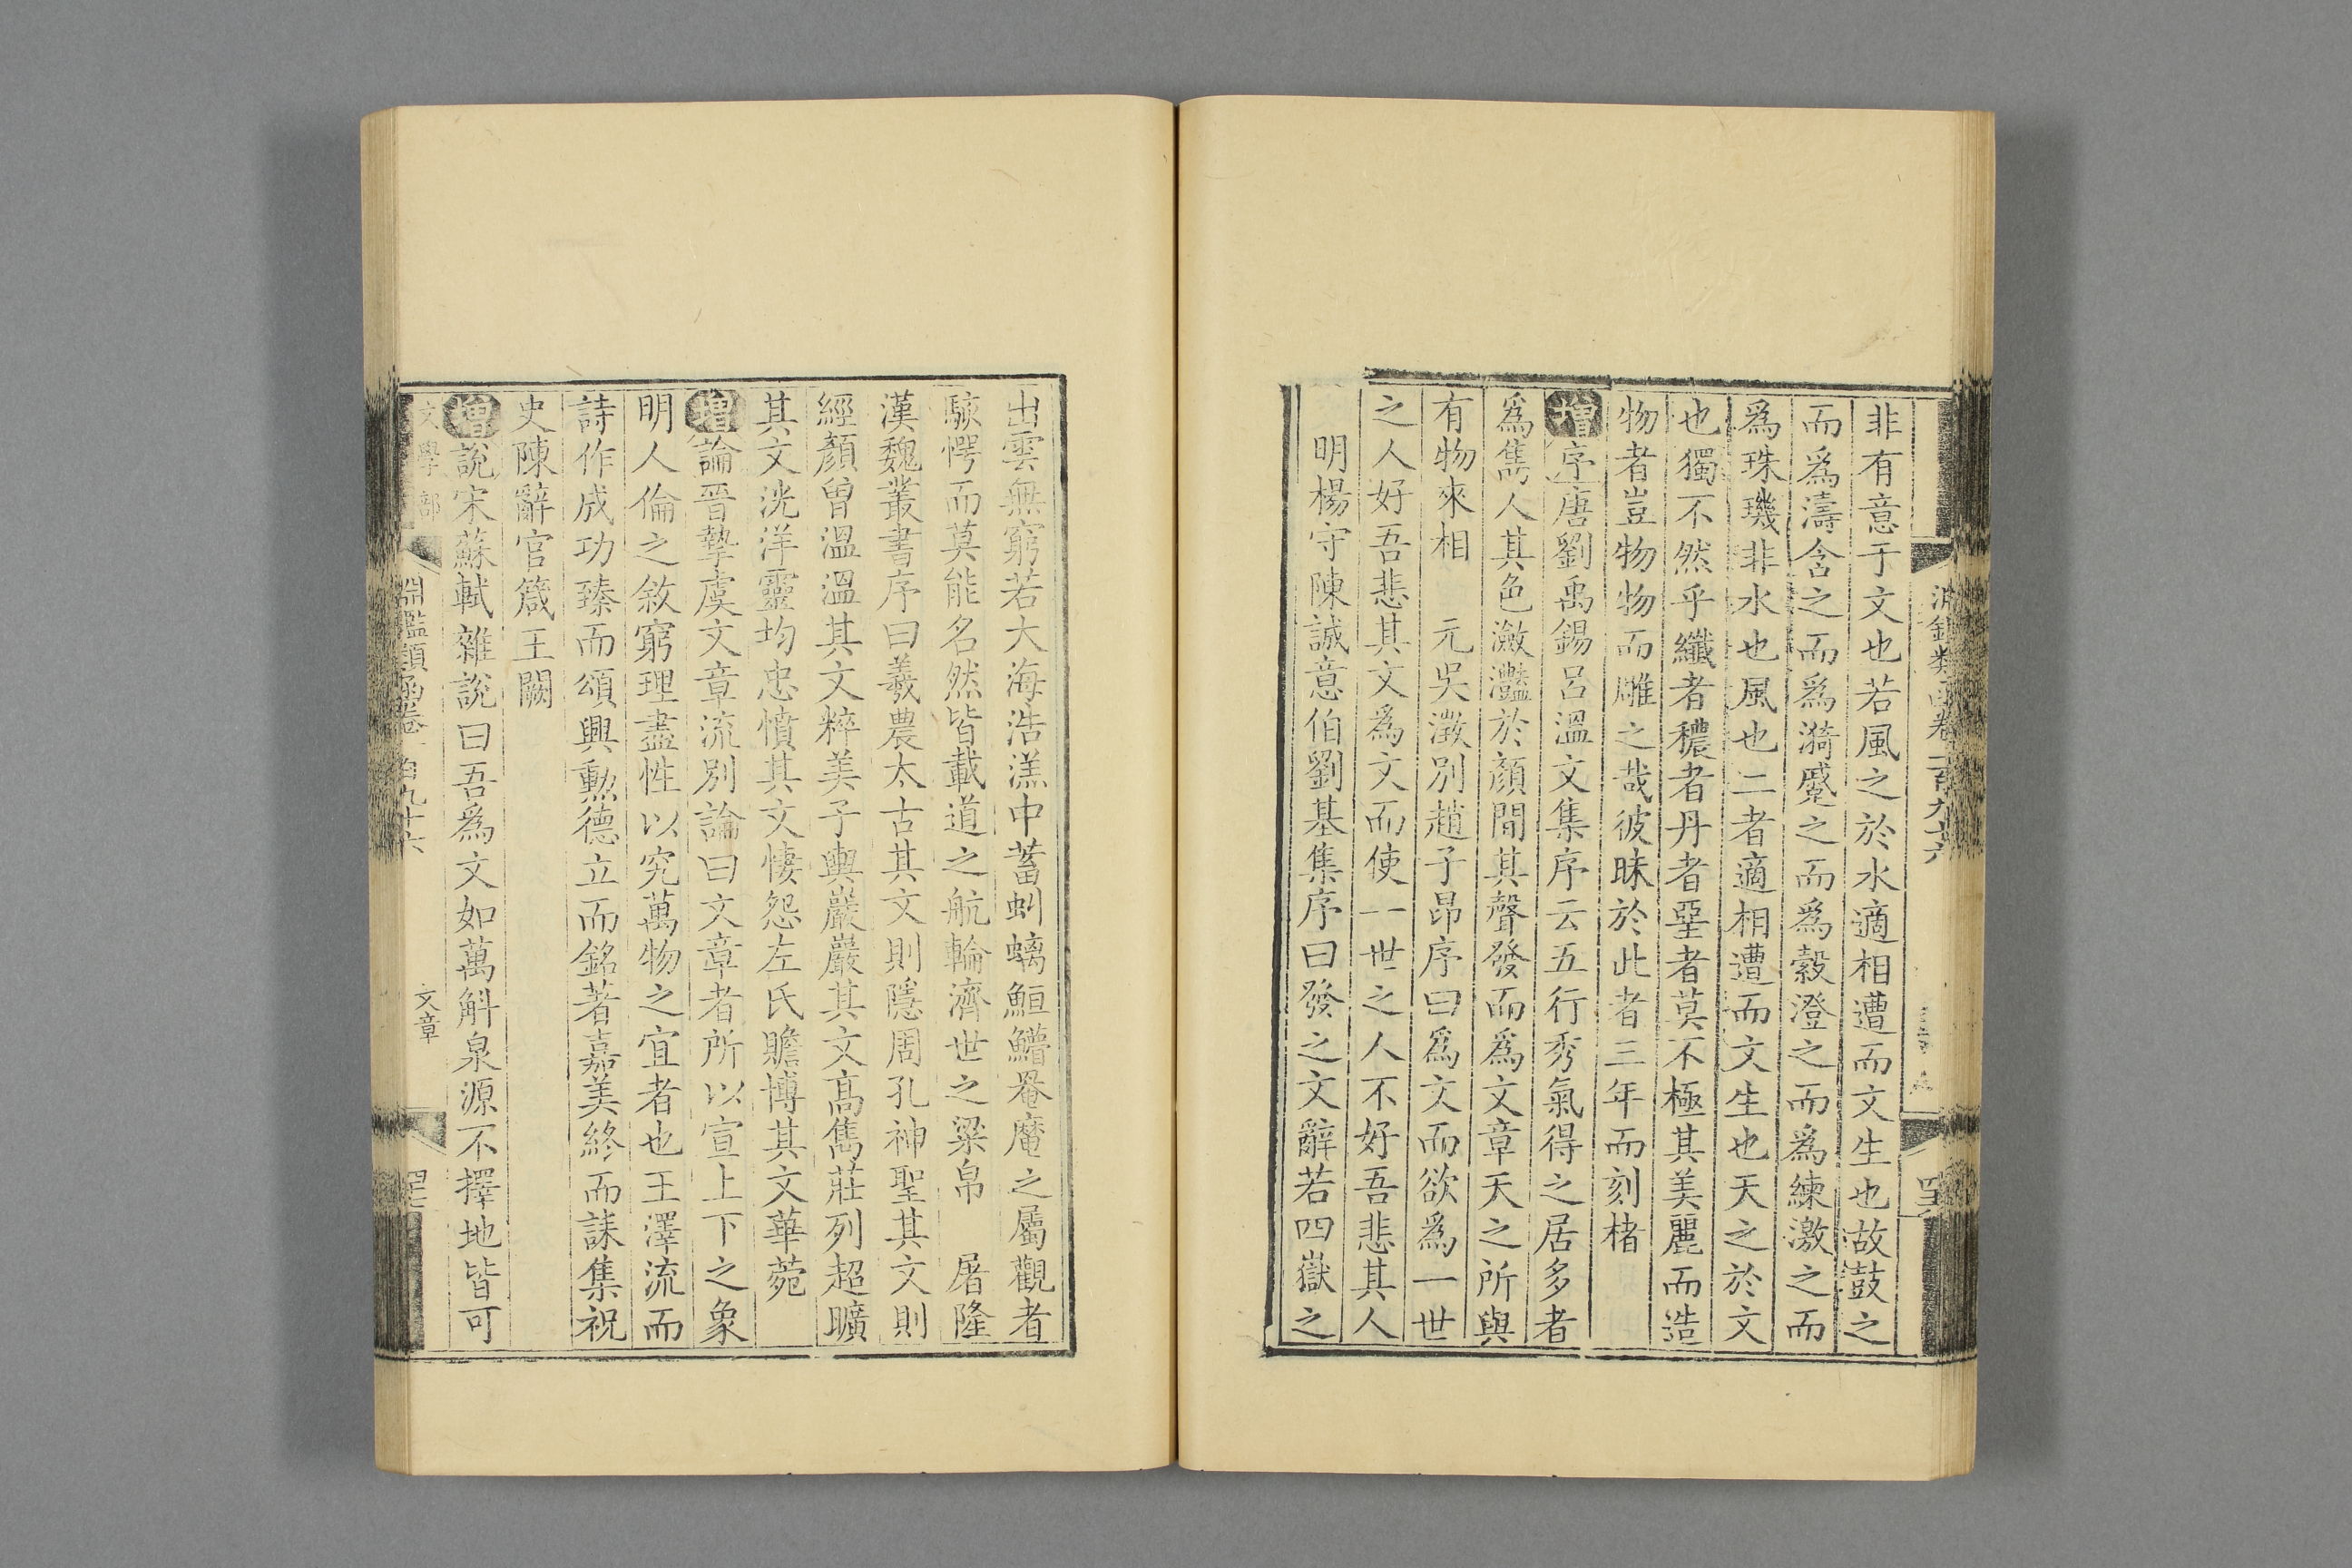 非有意于文也若風之於水適相遭而文生也故鼓之
而爲濤含之而爲漪蹙之而爲縠澄之而爲練激之而
爲珠璣非水也風也二者適相遭而文生也天之於文
也獨不然乎纖者穠者丹者堊者莫不極其美麗而造
物者豈物物而雕之哉彼昧於此者三年而刻楮
增序唐劉禹錫呂溫文集序云五行秀氣得之居多者
爲雋人其色瀲灩於顏間其聲發而爲文章天之所與
有物來相　元吳澂別趙子昂序曰爲文而欲爲一世
之人好吾悲其文爲文而使一世之人不好吾悲其人
明楊守陳誠意伯劉基集序曰發之文辭若四嶽之
出雲無窮若大海浩渼中蓄虯螭鮔鱨黿鼉之屬觀者
駭愕而莫能名然皆載道之航輪濟世之粱帛　屠隆
漢魏叢書序曰羲農太古其文則隱周孔神聖其文則
經顏曾溫溫其文粹美子輿巖巖其文高雋莊列超曠
其文洸洋靈均忠憤其文悽怨左氏贍博其文華菀
增論晉摯虞文章流別論曰文章者所以宣上下之象
明人倫之敘窮理盡性以究萬物之宜者也王澤流而
詩作成功臻而頌興勲德立而銘著嘉美終而誄集祝
史陳辭官箴王闕
增說宋蘇軾雜說曰吾爲文如萬斛泉源不擇地皆可
文學部　淵鑑類函卷一百九十六　文章